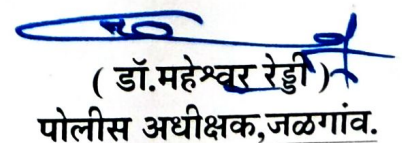 ( डॉ.महेश्वर रेड्डी )
पोलीस अधीक्षक,जळगांव.